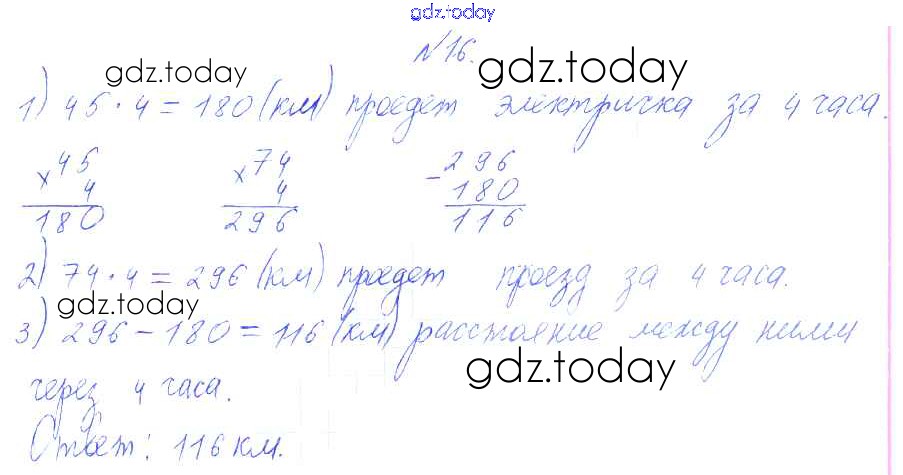 gdz.today
№16.
gdz.today gdz.today
1) 45·4=180(км) проедет электричка за 4 часа.
×45 ×74 -296
4 4 180
180 296 116
2) 74·4=296(км) проедет проезд за 4 часа.
gdz.today
3) 296-180=116(км) расстояние между ними
gdz.today
через 4 часа.
Ответ: 116 км.